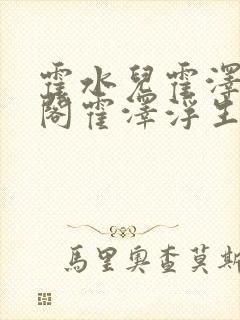 霍水兒霍澤
閣霍澤浮生
馬里奧查莫斯